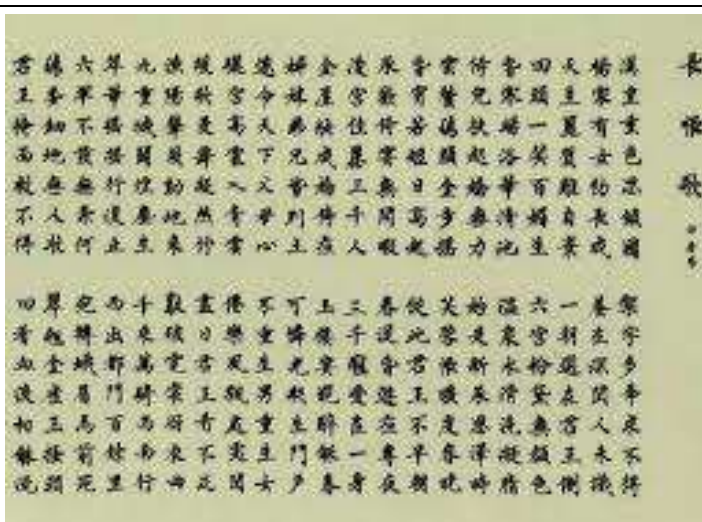 長恨歌
漢皇重色思傾國 御宇多年求不得
楊家有女初長成 養在深閨人未識
天生麗質難自棄 一朝選在君王側
回頭一笑百媚生 六宮粉黛無顏色
春寒賜浴華清池 溫泉水滑洗凝脂
侍兒扶起嬌無力 始是新承恩澤時
雲鬢顏金步搖 芙蓉帳暖度春
春宵苦短日高起 從此君王不早朝
承歡侍宴無閒暇 春從春遊夜專夜
宮佳麗三千人 三千寵愛在一身
金屋妝成嬌侍夜 玉樓宴罷醉和春
姊妹弟兄皆列土 可憐光彩生門戶
遂令天下父母心 不重生男重生女
驪宮高處入青雲 仙樂風飄處處聞
緩歌慢舞凝絲竹 盡日君王看不足
漁陽鼙鼓動地來 驚破霓裳羽衣曲
九重城闕煙塵生 千乘萬騎西南行
翠華搖搖行復止 西出都門百餘里
六軍不發無奈何 宛轉蛾眉馬前死
鈿委地無人收 翠翹金雀玉搔頭
君王掩面救不得 回看血淚相和流